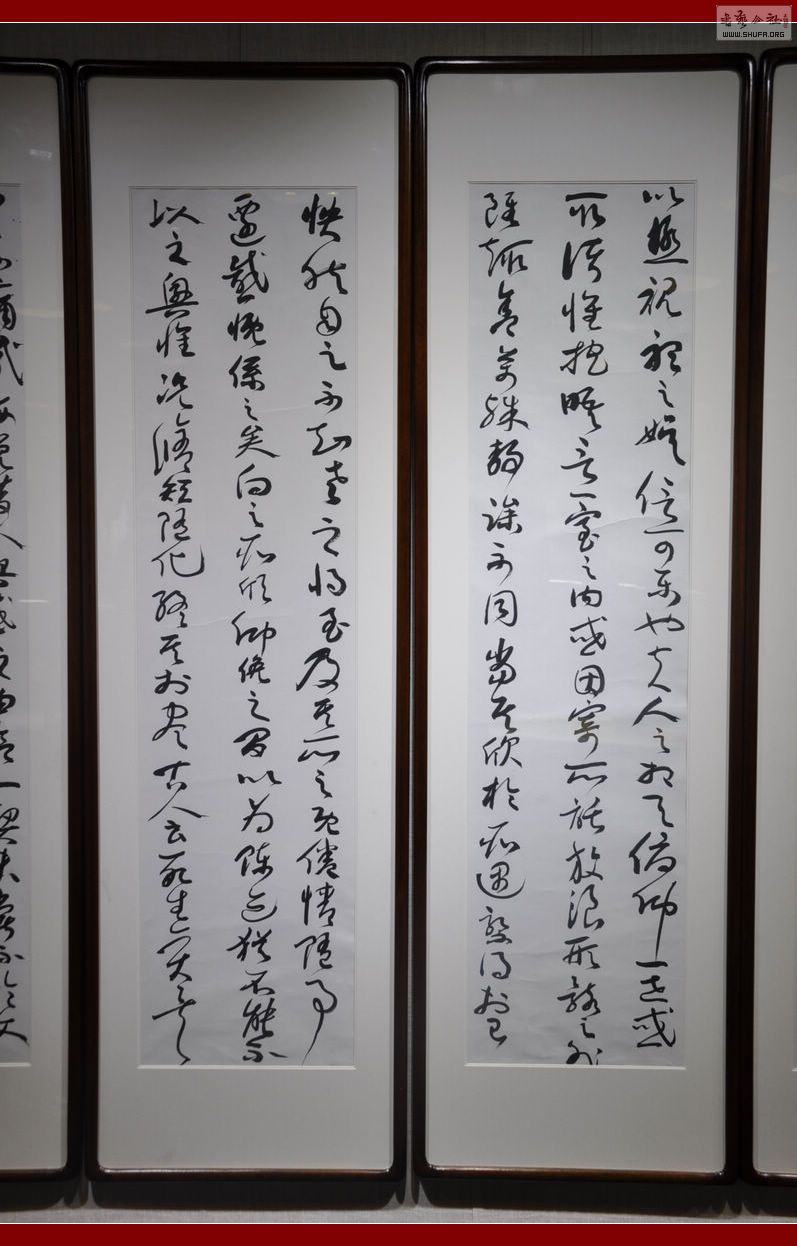 以極視聽之娛信可樂也夫人之相與俯仰一世或
取諸懷抱晤言一室之內或因寄所託放浪形骸之外
雖趣舍萬殊靜躁不同當其欣於所遇暫得於己
快然自足不知老之将至及其所之既倦情隨事
遷感慨係之矣向之所欣仰俛之間以為陳迹猶不能不
以之興懷況脩短隨化終期於盡古人云死生亦大矣豈不
痛哉每覽昔人興感之由若合一契未嘗不臨文
书艺公社
WWW.SHUFA.ORG